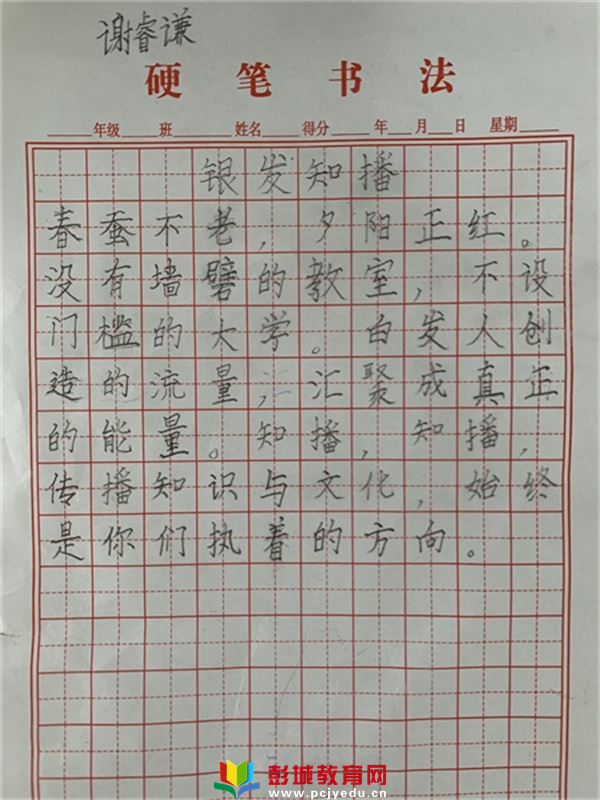 谢睿谦
硬笔书法
年级 班 姓名 得分 年 月 日 星期
银发知播
春蚕不老，夕阳正红。
没有墙壁的教室，不设
门槛的大学。白发人创
造的流量，汇聚成真正
的能量。知播，知播，
传播知识与文化，始终
是你们执着的方向。
彭城教育网
www.pcjyedu.cn